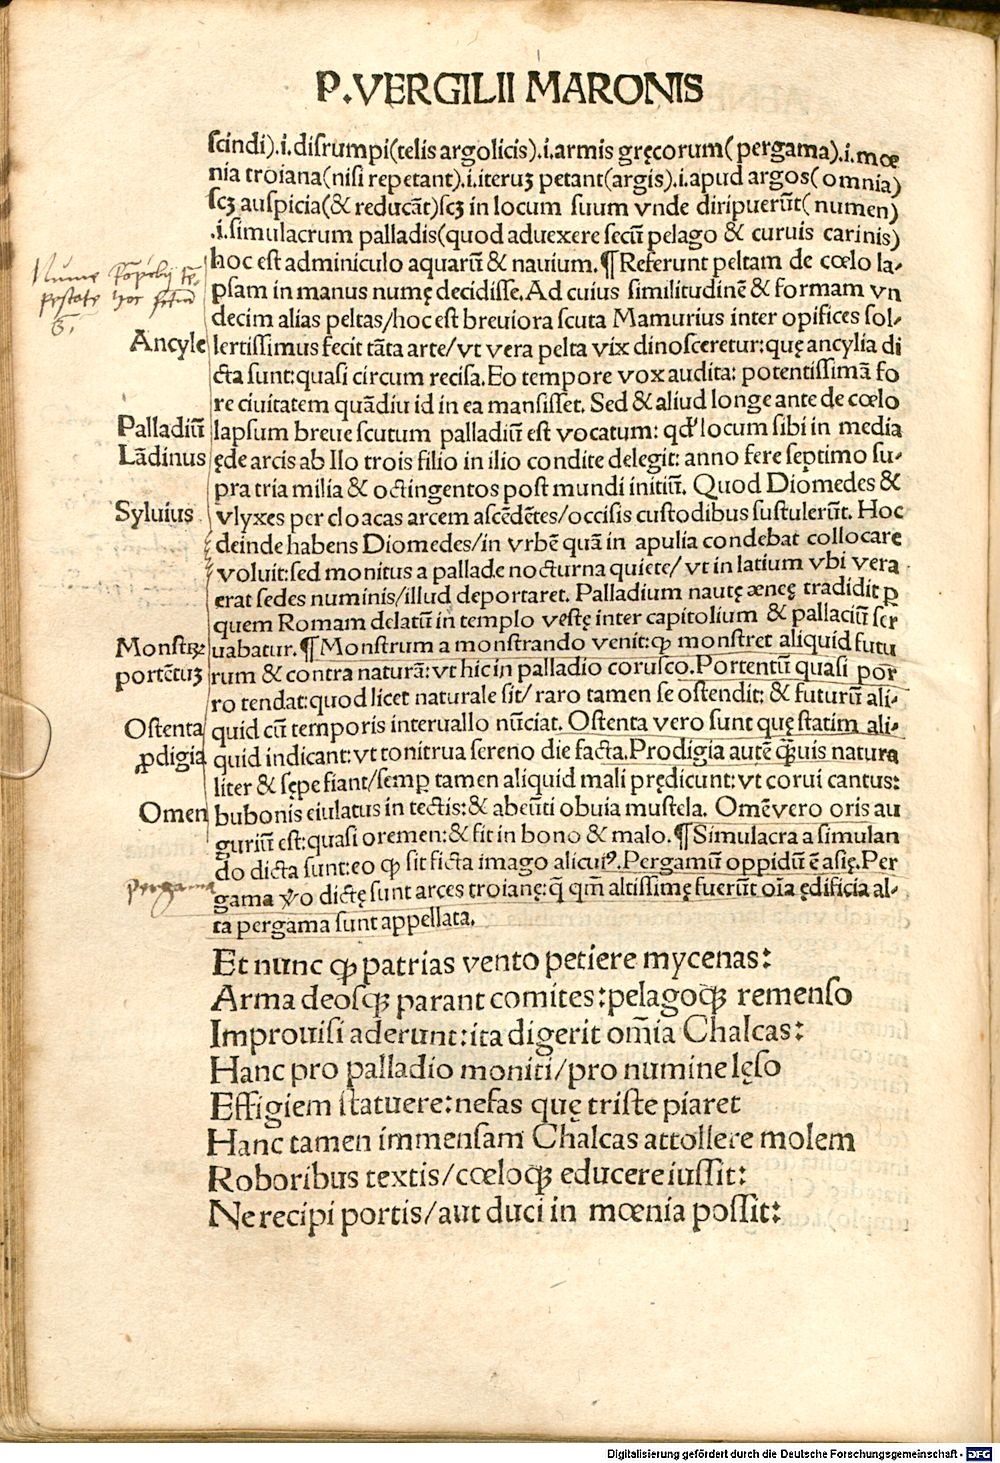 P.VERGILII MARONIS
scindi).i.disrumpi(telis argolicis).i.armis gręcorum(pergama).i.mœ
nia troiana(nisi repetant).i.iteruꝫ petant(argis).i.apud argos(omnia)
scꝫ auspicia(& reducāt)scꝫ in locum suum vnde diripuerūt(numen)
.i.simulacrum palladis(quod aduexere secū pelago & curuis carinis)
hoc est adminiculo aquarū & nauium.¶Referunt peltam de cœlo la-
psam in manus numę decidisse.Ad cuius similitudinē & formam vn
decim alias peltas/hoc est breuiora scuta Mamurius inter opifices sol-
Ancyle
lertissimus fecit tāta arte/vt vera pelta vix dinosceretur:quę ancylia di
cta sunt:quasi circum recisa.Eo tempore vox audita: potentissimā fo
re ciuitatem quādiu id in ea mansisset. Sed & aliud longe ante de cœlo
Palladiū
lapsum breue scutum palladiū est vocatum: qd' locum sibi in media
Lādinus
ęde arcis ab Ilo trois filio in ilio condite delegit: anno fere septimo su-
pra tria milia & octingentos post mundi initiū. Quod Diomedes &
Syluius
vlyxes per cloacas arcem ascēdētes/occisis custodibus sustulerūt. Hoc
deinde habens Diomedes/in vrbē quā in apulia condebat collocare
voluit:sed monitus a pallade nocturna quiete/vt in latium vbi vera
erat sedes numinis/illud deportaret. Palladium nautę æneę tradidit ꝑ
quem Romam delatū in templo vestę inter capitolium & pallaciū ser
Monstꝝ
uabatur.¶Monstrum a monstrando venit:ꝙ monstret aliquid futu
portētuꝫ
rum & contra naturā:vt hic in palladio corusco.Portentū quasi por
ro tendat:quod licet naturale sit/raro tamen se ostendit: & futurū ali-
Ostenta
quid cū temporis interuallo nūciat. Ostenta vero sunt quę statim ali-
ꝓdigia
quid indicant:vt tonitrua sereno die facta.Prodigia autē q̄uis natura
liter & sępe fiant/semꝑ tamen aliquid mali prędicunt:vt corui cantus:
Omen
bubonis eiulatus in tectis:& abeūti obuia mustela. Omē vero oris au
guriū est:quasi oremen:& fit in bono & malo.¶Simulacra a simulan
do dicta sunt:eo ꝙ sit ficta imago alicuiꝰ.Pergamū oppidū ē asię.Per
pergama
gama v̊o dictę sunt arces troianę:q̄ qm̄ altissimę fuerūt oīa ędificia al-
ta pergama sunt appellata.
Et nunc ꝙ patrias vento petiere mycenas:
Arma deosqꝫ parant comites:pelagoqꝫ remenso
Improuisi aderunt:ita digerit om̄ia Chalcas:
Hanc pro palladio moniti/pro numine lęso
Effigiem statuere:nefas quę triste piaret
Hanc tamen immensam Chalcas attollere molem
Roboribus textis/cœloqꝫ educere iussit:
Ne recipi portis/aut duci in mœnia possit:
Digitalisierung gefördert durch die Deutsche Forschungsgemeinschaft - DFG